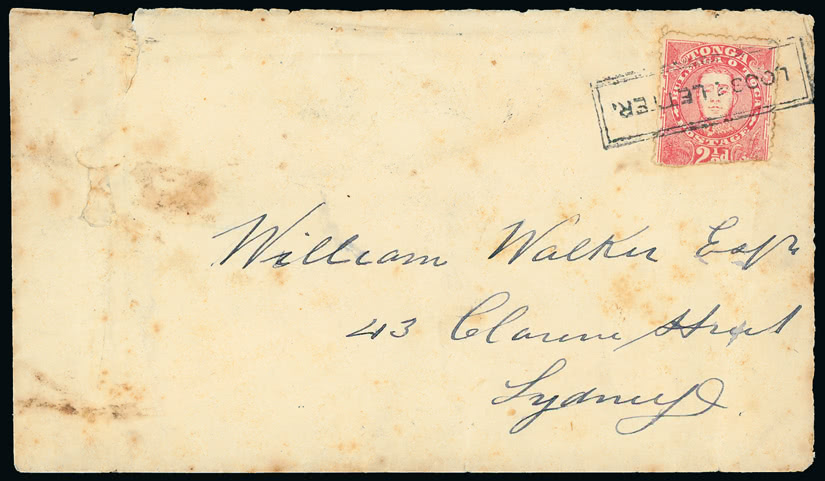 TONGA
POSTAGE
2½d
LOOSE LETTER.
William Walker Esqr
43 Clarence Street
Sydney